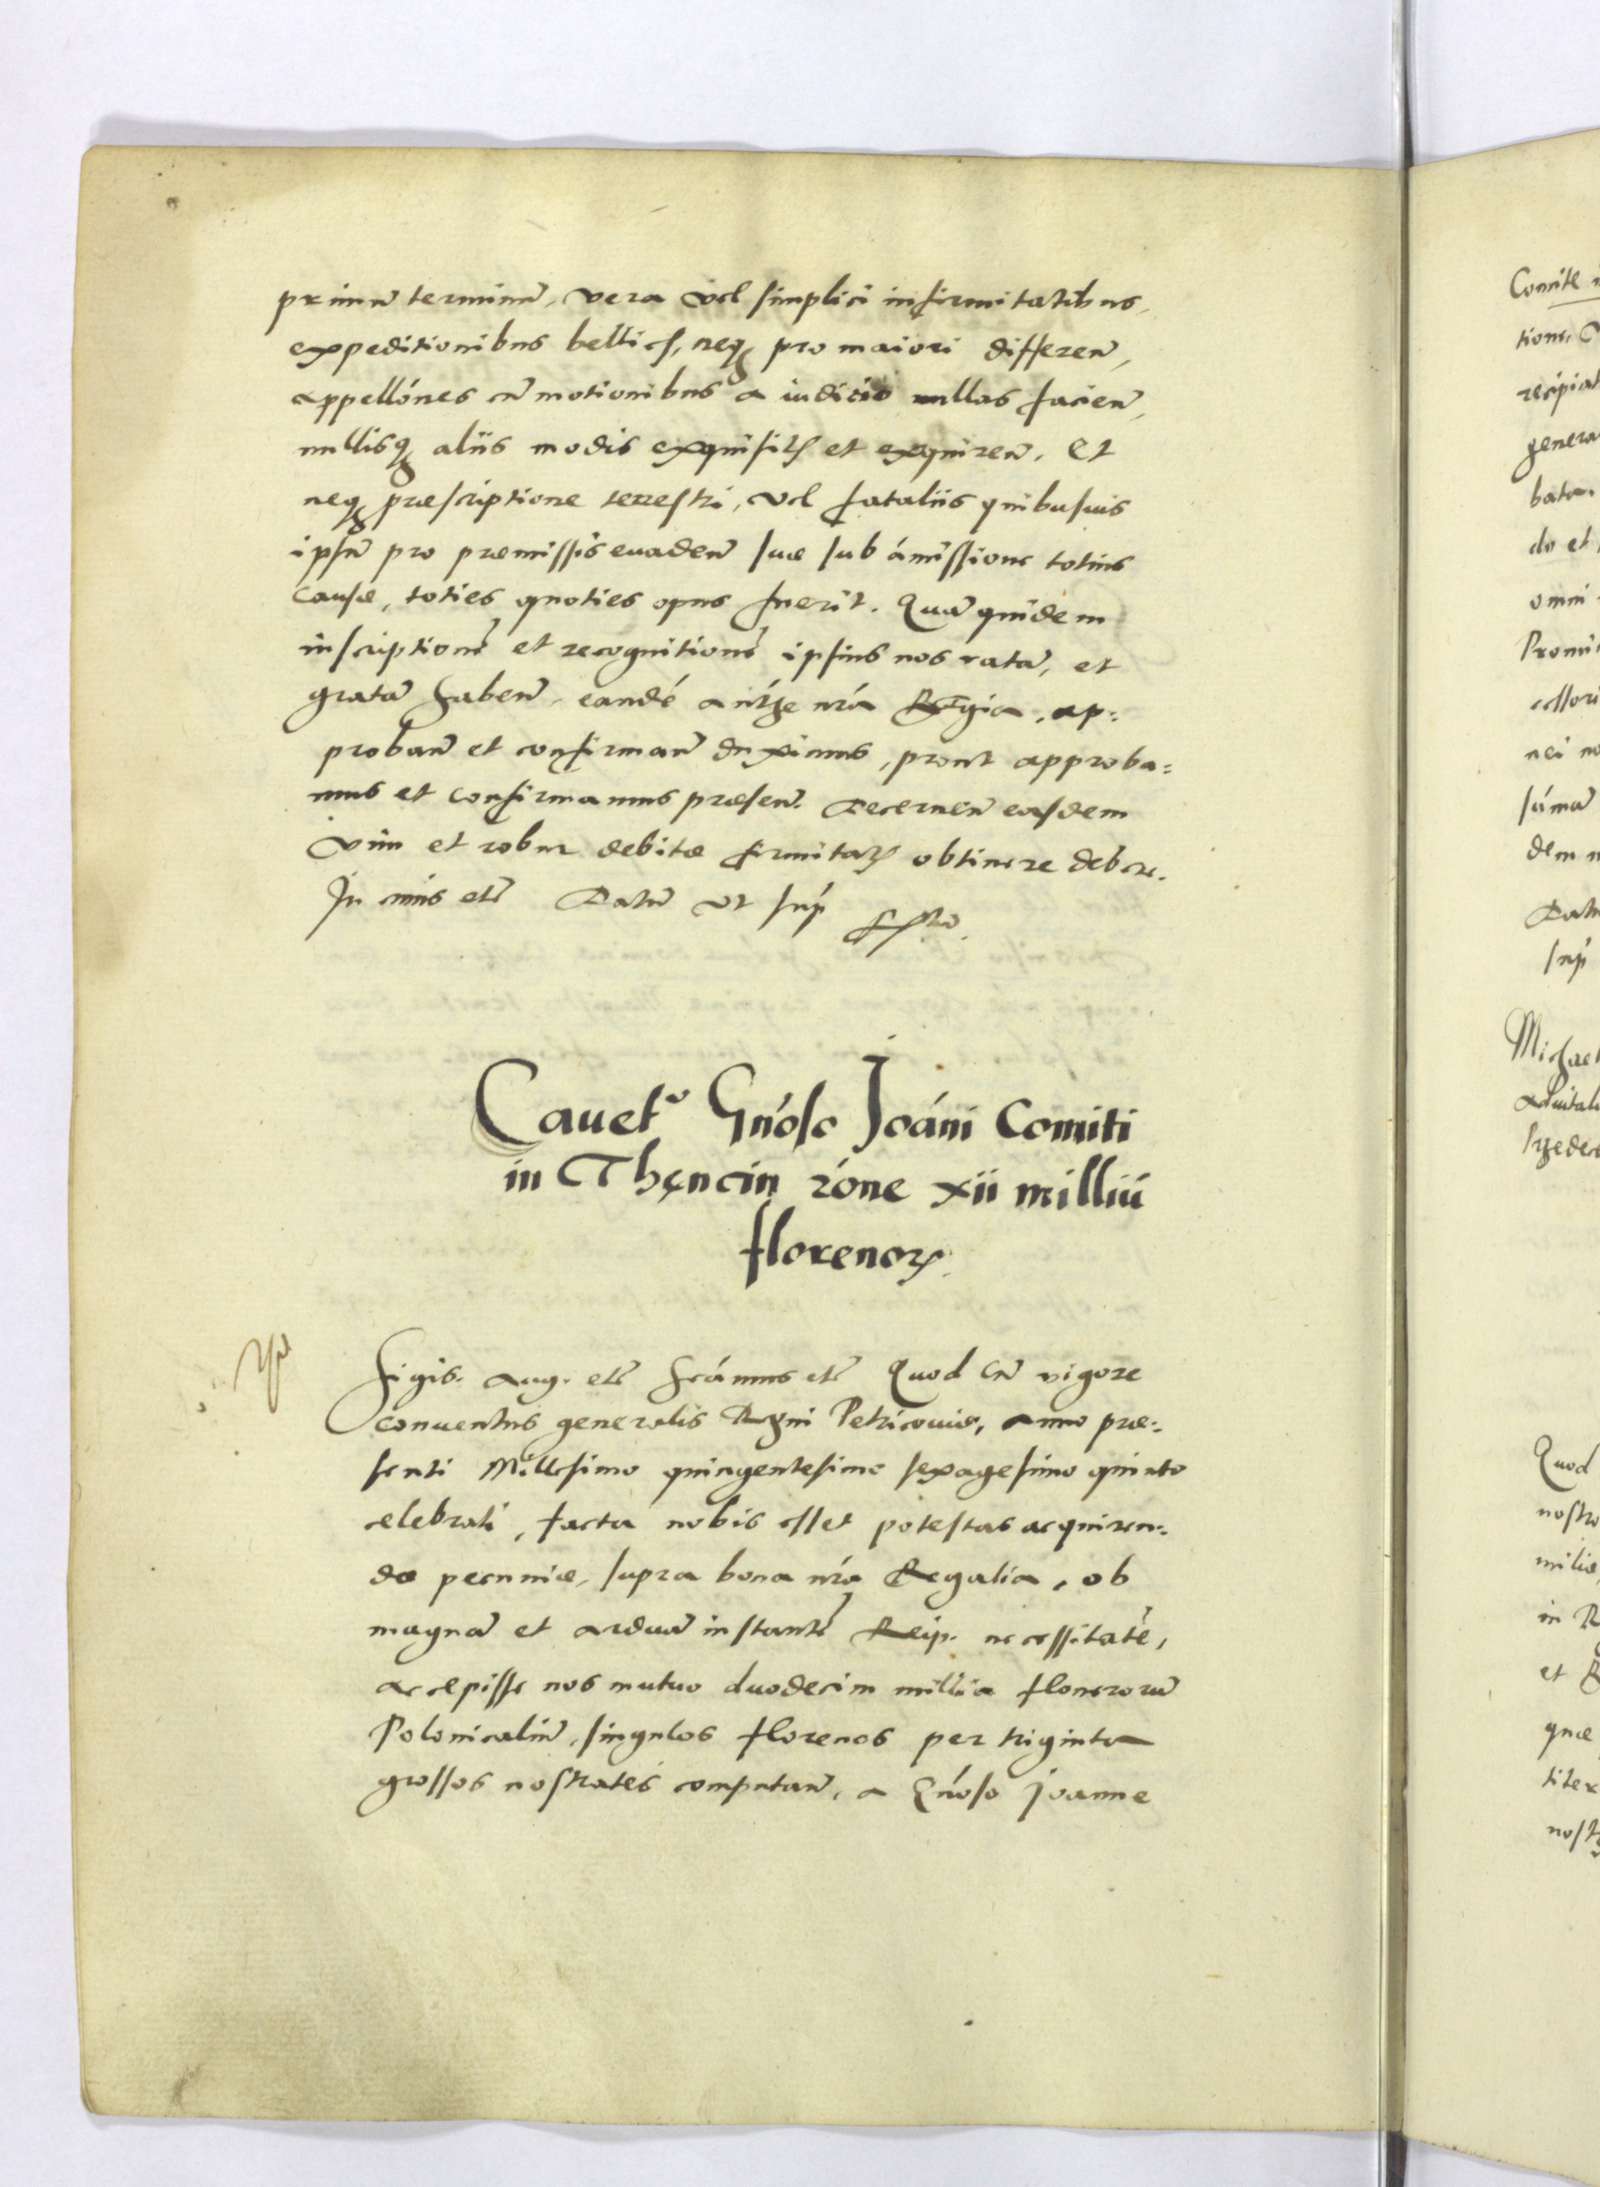 primū terminū, vera vel simplici infirmitatibus,
expeditionibus bellicꝭ, neqꝫ pro maiori differen̄,
appellónes cū motionibus a iudicio nullas facien̄,
nullisqꝫ aliis modis exquisitꝭ et exquiren̄. Et
neqꝫ præscriptione terrestri, vel fataliis quibusuis
ipsū pro præmissis euaden̄ suæ sub ámissione totius
causæ, toties quoties opus fuerit. Quā quidem
inscriptionē et recognitionē ipsius nos ratā, et
gratā haben̄, eandē aútꝫe nr̄a Regia, ap-
proban̄ et confirman̄ duximus, prout approba-
mus et confirmamus præsen̄. Decernen̄ easdem
vim et robur debitæ firmitatꝭ obtinere debere.
In cuius etc̄ Datū vt sup̄
Cauetʳ Gn̄oso Joáni Comiti
in Thęncin róne xii milliū
florenoꝝ.
Sigis. Aug. etc̄ Scámus etc̄ Quod cū vigore
conuentus generalis Regni Petricouiæ, anno præ-
senti Millesimo quingentesimo sexagesimo quinto
celebrati, facta nobis esset potestas acquiren-
dæ pecuniæ, supra bona nr̄a Regalia, ob
magnā et arduā instantē Reip. necessitatē,
accepisse nos mutuo duodecim millia florenorū
Polonicaliū, singulos florenos per triginta
grossos nostrates computan̄, a Gn̄oso Joanne
Comite
tione,
recipiat
genera
bato.
do et
omni
cessori
nei no
súmā
dem n
Datū
sup̄
Michael
Quod
nostro
miliæ,
in R
et
quæ
titer
nost